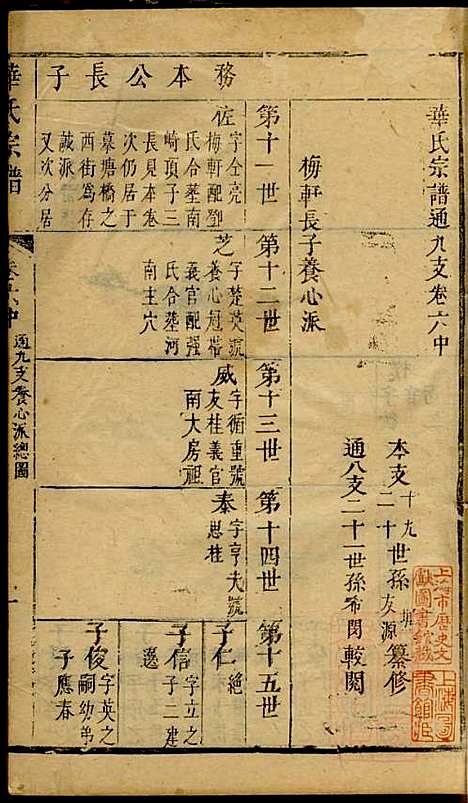 華氏宗譜通九支卷六中
本支十九世孫
二十
友源纂修
通八支二十一世孫希閔較閱
梅軒長子養心派
務本公長子
第十一世
第十二世
第十三世
第十四世
第十五世
佐
字仝亮
梅軒配鄧
氏合塟南
崎頂子三
長見本卷
次仍居于
墓塘橋之
西街為存
誠派
又次分居
芝
字楚英號
養心冠帶
義官配強
氏合塟河
南主穴
威
字循重號
友桂義官
南大房祖
泰
字亨夫號
思桂
子仁
絕
子信
字立之
子二建
邊
子俊
字英之
嗣幼弟
子應春
華氏宗譜
卷六中
通九支養心派總圖
一
上海市歷史文
獻圖書館藏